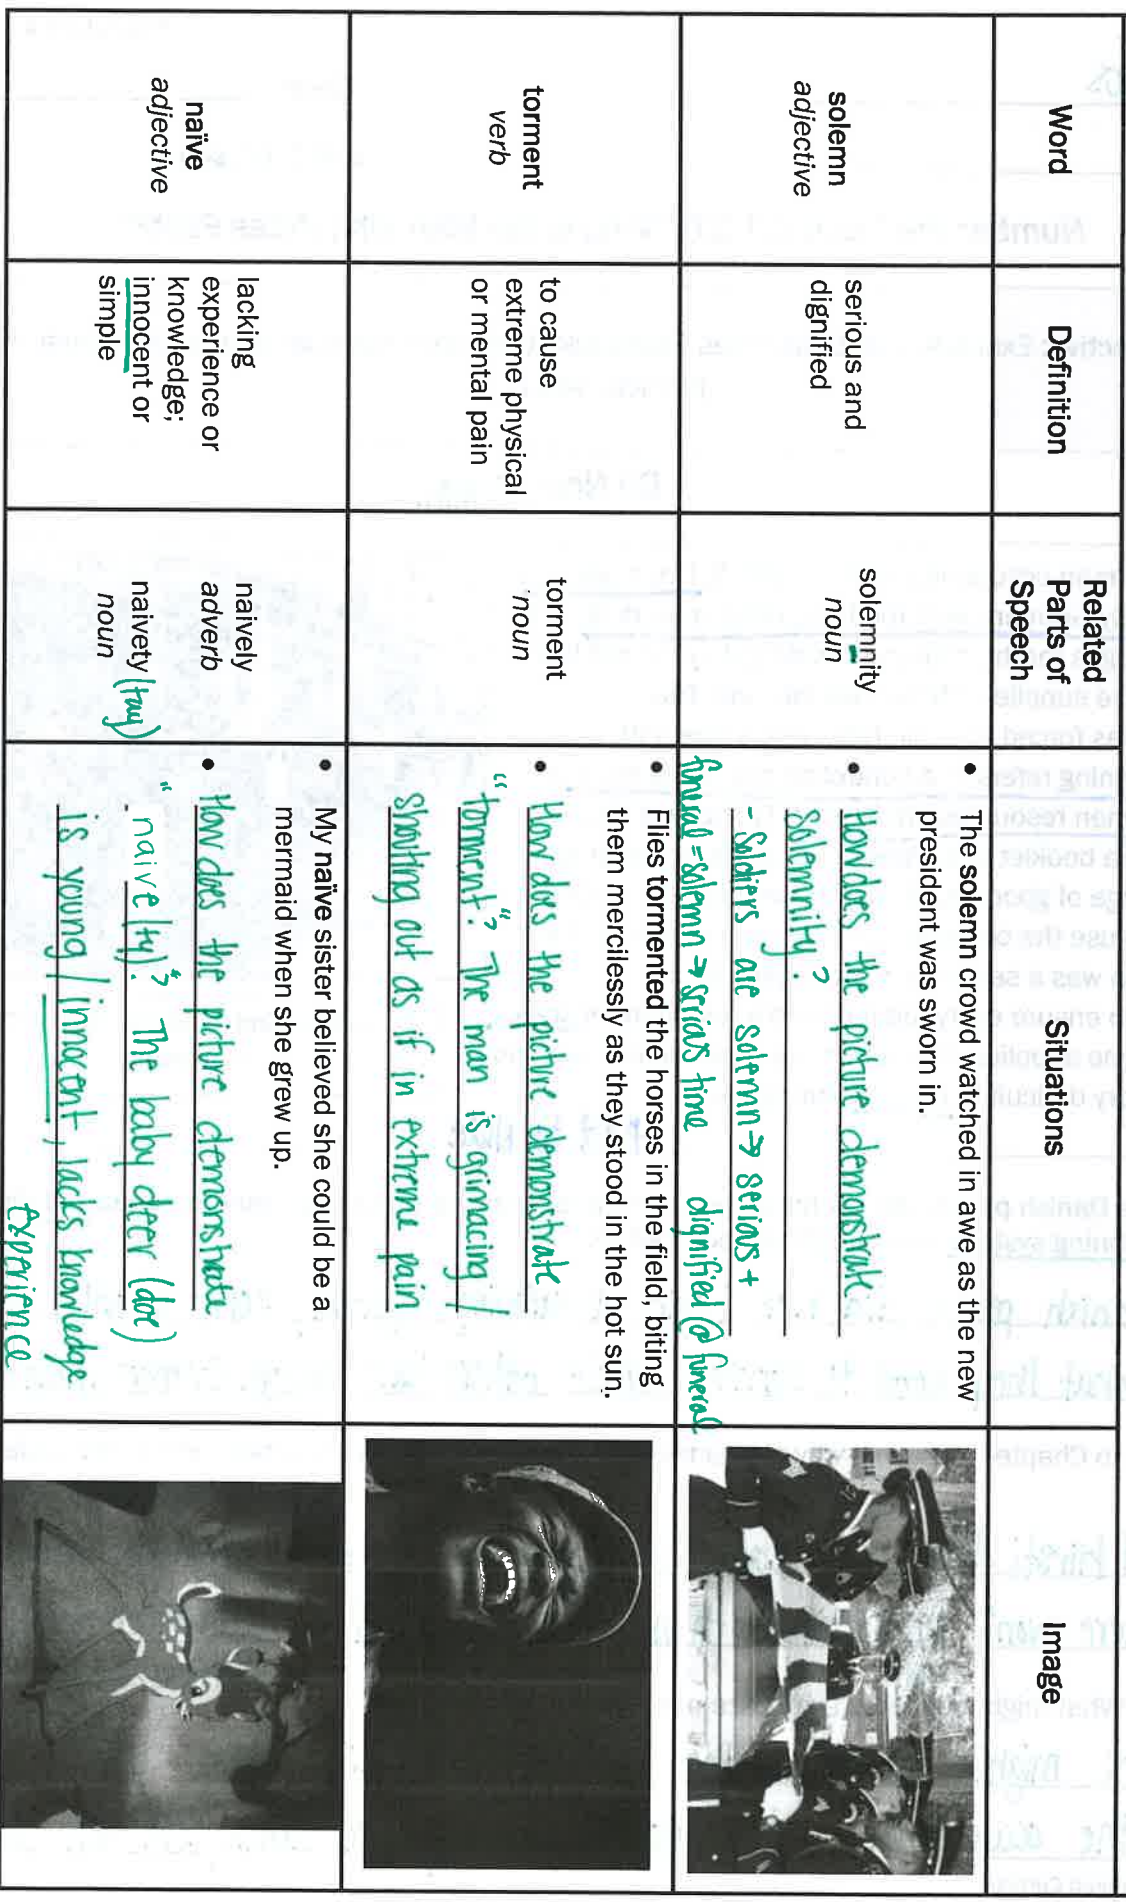 Word
Definition
Related
Parts of
Speech
Situations
Image
solemn
adjective
serious and
dignified
solemnity
noun
• The solemn crowd watched in awe as the new
president was sworn in.
• How does the picture demonstrate
solemnity?
- Soldiers are solemn → serious +
funeral = solemn → serious time dignified @ funeral
torment
verb
to cause
extreme physical
or mental pain
torment
noun
• Flies tormented the horses in the field, biting
them mercilessly as they stood in the hot sun.
• How does the picture demonstrate
"torment"? The man is grimacing /
shouting out as if in extreme pain
naïve
adjective
lacking
experience or
knowledge;
innocent or
simple
naively
adverb
naivety (tay)
noun
• My naïve sister believed she could be a
mermaid when she grew up.
• How does the picture demonstrate
"naive(ty)"? The baby deer (doe)
is young / innocent, lacks knowledge
experience